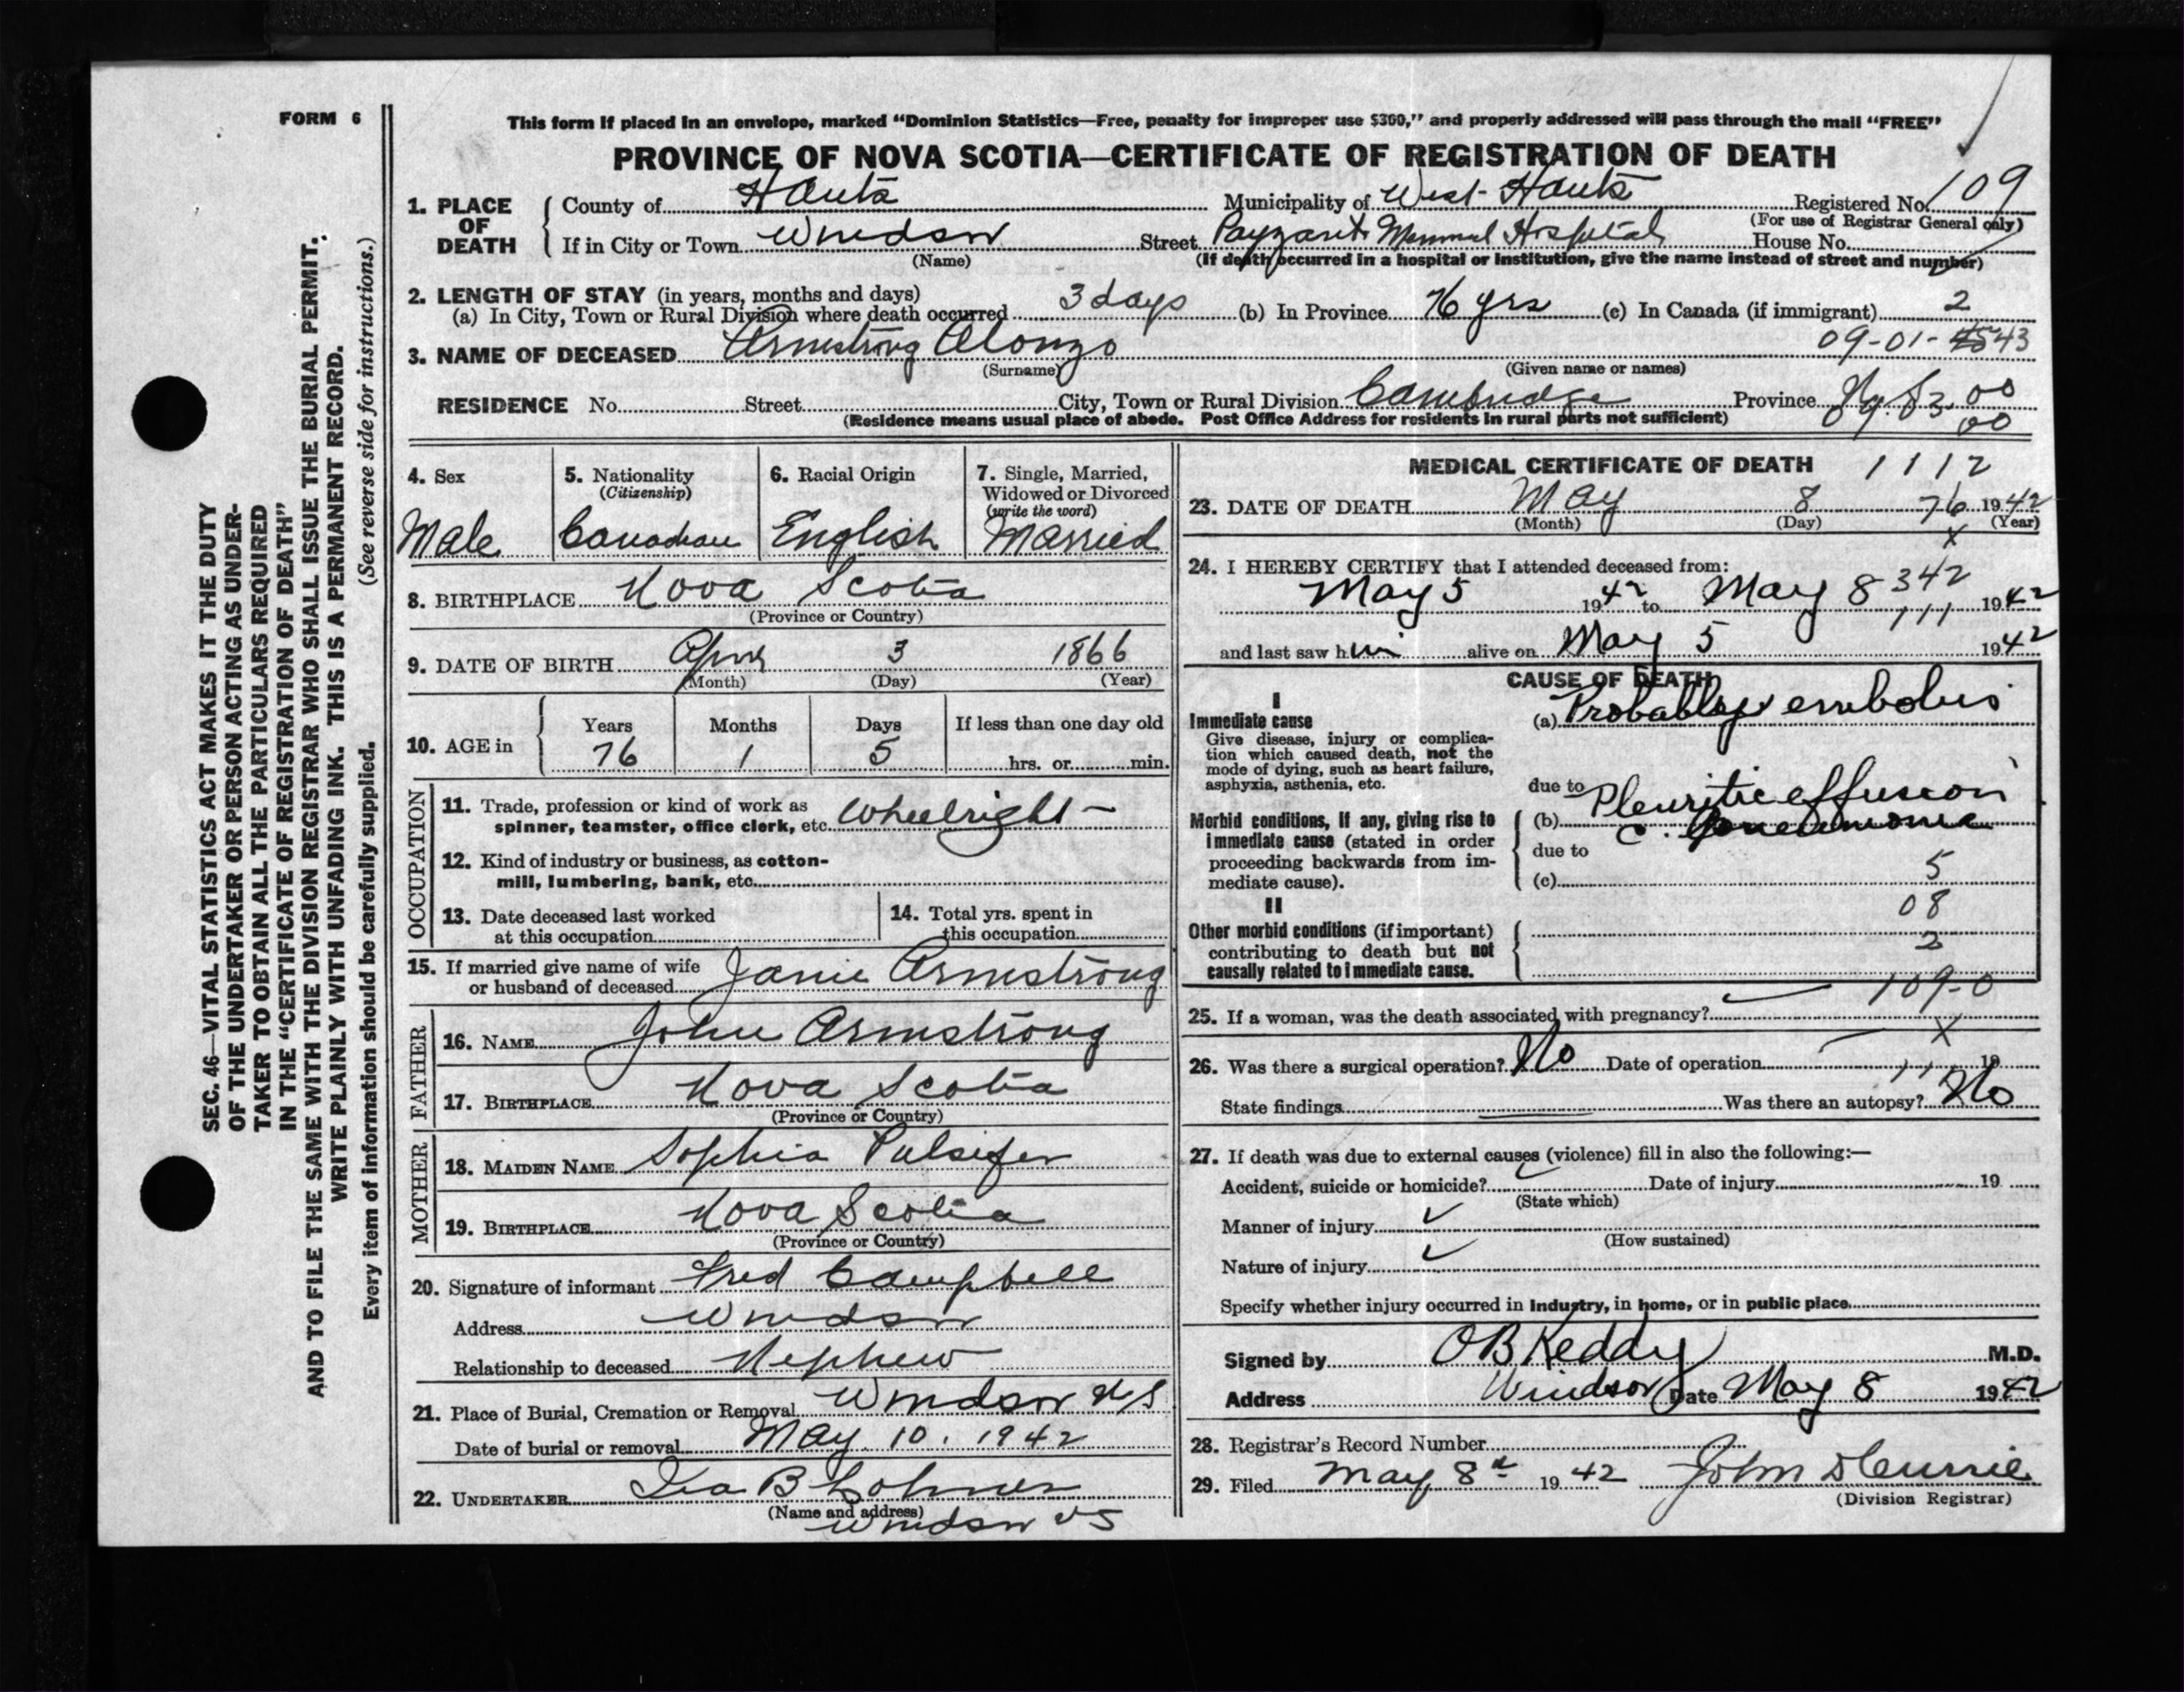 FORM 6
This form if placed in an envelope, marked "Dominion Statistics—Free, penalty for improper use $300," and properly addressed will pass through the mail "FREE"
PROVINCE OF NOVA SCOTIA—CERTIFICATE OF REGISTRATION OF DEATH
1. PLACE OF DEATH
County of Hants Municipality of West Hants Registered No. 109
(For use of Registrar General only)
If in City or Town Windsor Street Payzant Memorial Hospital House No.
(Name) (If death occurred in a hospital or institution, give the name instead of street and number)
2. LENGTH OF STAY (in years, months and days)
(a) In City, Town or Rural Division where death occurred 3 days (b) In Province 76 yrs (c) In Canada (if immigrant) 2
09-01- 43
3. NAME OF DECEASED Armstrong Alonzo
(Surname) (Given name or names)
RESIDENCE No. Street City, Town or Rural Division Cambridge Province N.S. 00
(Residence means usual place of abode. Post Office Address for residents in rural parts not sufficient) 00
4. Sex Male
5. Nationality (Citizenship) Canadian
6. Racial Origin English
7. Single, Married, Widowed or Divorced (write the word) Married
8. BIRTHPLACE Nova Scotia
(Province or Country)
9. DATE OF BIRTH April 3 1866
(Month) (Day) (Year)
10. AGE in
Years Months Days If less than one day old
76 1 5 hrs. or min.
OCCUPATION
11. Trade, profession or kind of work as
spinner, teamster, office clerk, etc. Wheelright
12. Kind of industry or business, as cotton-
mill, lumbering, bank, etc.
13. Date deceased last worked
at this occupation
14. Total yrs. spent in
this occupation
15. If married give name of wife
or husband of deceased Janie Armstrong
FATHER
16. NAME John Armstrong
17. BIRTHPLACE Nova Scotia
(Province or Country)
MOTHER
18. MAIDEN NAME Sophia Pulsifer
19. BIRTHPLACE Nova Scotia
(Province or Country)
20. Signature of informant Fred Campbell
Address Windsor
Relationship to deceased Nephew
21. Place of Burial, Cremation or Removal Windsor N S
Date of burial or removal May 10. 1942
22. UNDERTAKER Ira B
(Name and address)
Windsor N S
MEDICAL CERTIFICATE OF DEATH 1112
23. DATE OF DEATH May 8 76 1942
(Month) (Day) (Year)
x
24. I HEREBY CERTIFY that I attended deceased from:
May 5 1942 to May 8 1942
342
111
and last saw him alive on May 5 1942
CAUSE OF DEATH
I
Immediate cause
Give disease, injury or complica-
tion which caused death, not the
mode of dying, such as heart failure,
asphyxia, asthenia, etc.
(a) Probably embolus
due to
Morbid conditions, if any, giving rise to
immediate cause (stated in order
proceeding backwards from im-
mediate cause).
(b) Pleuritic effusion
c. pneumonia
due to
(c) 5
II
08
Other morbid conditions (if important)
contributing to death but not
causally related to immediate cause.
2
109-0
25. If a woman, was the death associated with pregnancy?
x
26. Was there a surgical operation? No Date of operation 19
State findings Was there an autopsy? No
27. If death was due to external causes (violence) fill in also the following:—
Accident, suicide or homicide? Date of injury 19
(State which)
Manner of injury
(How sustained)
Nature of injury
Specify whether injury occurred in industry, in home, or in public place
Signed by O B Keddy M.D.
Address Windsor Date May 8 1942
28. Registrar's Record Number
29. Filed May 8th 1942 John D Currie
(Division Registrar)
SEC. 46—VITAL STATISTICS ACT MAKES IT THE DUTY
OF THE UNDERTAKER OR PERSON ACTING AS UNDER-
TAKER TO OBTAIN ALL THE PARTICULARS REQUIRED
IN THE "CERTIFICATE OF REGISTRATION OF DEATH"
AND TO FILE THE SAME WITH THE DIVISION REGISTRAR WHO SHALL ISSUE THE BURIAL PERMIT.
WRITE PLAINLY WITH UNFADING INK. THIS IS A PERMANENT RECORD.
Every item of information should be carefully supplied. (See reverse side for instructions.)